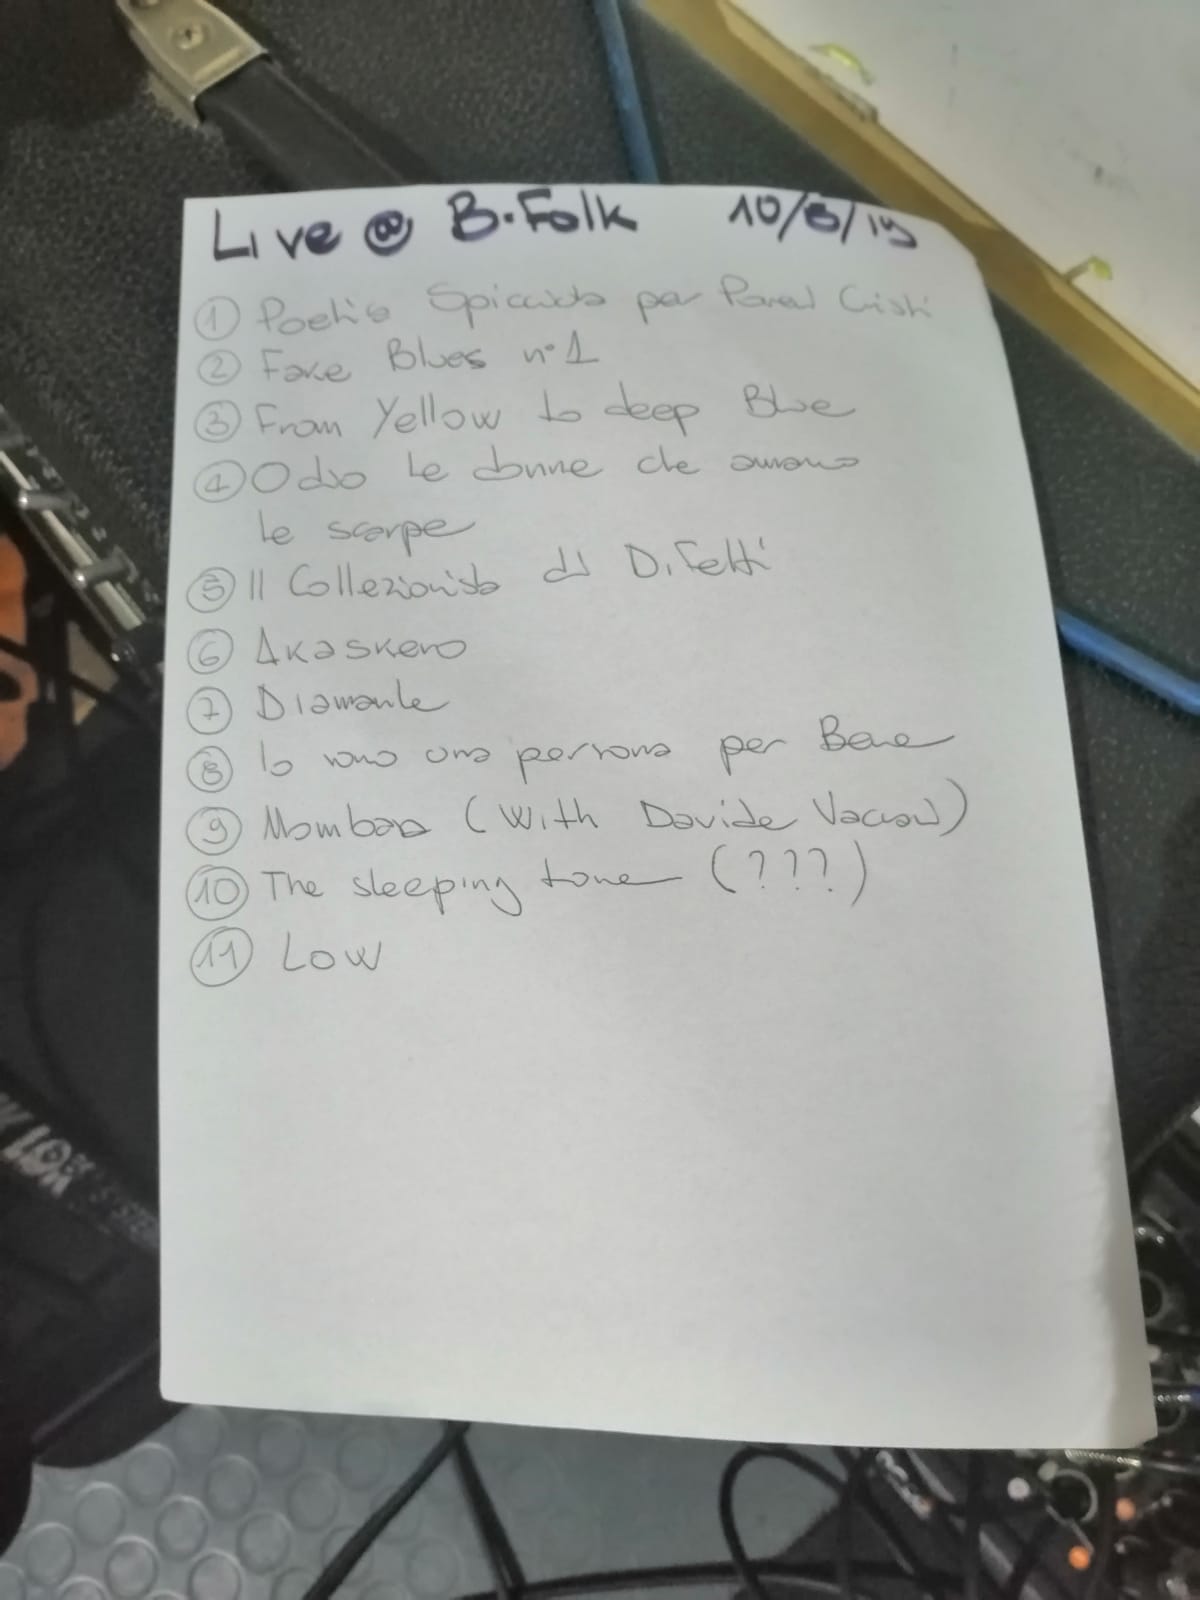 Live @ B.Folk 10/8/19
① Poetia Spiccata per Pavel Cristi
② Fake Blues n°1
③ From Yellow to deep Blue
④ Odio le donne che amano
le scarpe
⑤ Il Collezionista di Difetti
⑥ Akaskero
⑦ Diamante
⑧ Io sono una persona per Bene
⑨ Mombao (With Davide
⑩ The sleeping tone (???)
⑪ Low
VOX